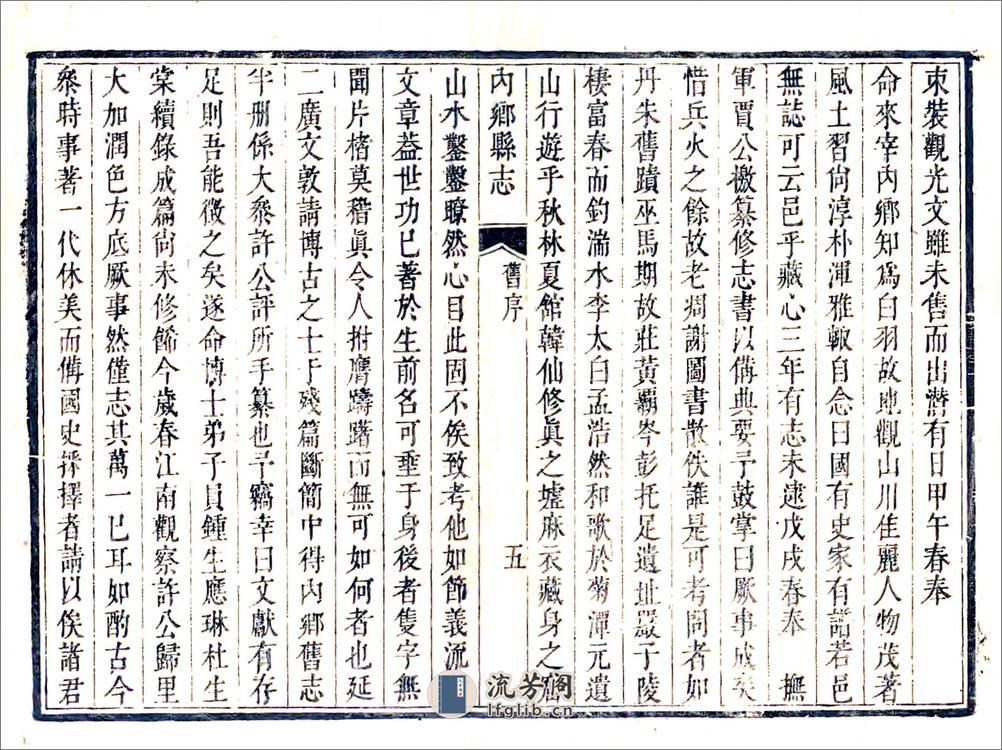 束裝觀光文雖未售而出潛有日甲午春奉
命來宰內鄉知爲白羽故地觀山川佳麗人物茂著
風土習尙淳朴渾雅輙自念曰國有史家有譜若邑
無誌可云邑乎藏心三年有志未逮戊戌春奉　撫
軍賈公檄纂修志書以備典要予鼓掌曰厥事成矣
惜兵火之餘故老凋謝圖書散佚誰是可考問者如
丹朱舊蹟巫馬期故莊黃霸岑彭托足遺址嚴子陵
棲富春而釣湍水李太白孟浩然和歌於菊潭元遺
山行遊乎秋林夏館韓仙修眞之墟麻衣藏身之窟
內鄉縣志　舊序　五
山水鑿鑿瞭然心目此固不俟致考他如節義流
文章蓋世功已著於生前名可垂于身後者隻字無
聞片楮莫稽眞令人拊膺躊躇而無可如何者也延
二廣文敦請博古之士于殘篇斷簡中得內鄉舊志
半册係大叅許公評所手纂也予竊幸曰文獻有存
足則吾能徵之矣遂命博士弟子員鍾生應琳杜生
棠續錄成篇尙未修餙今歲春江南觀察許公歸里
大加潤色方底厥事然僅志其萬一已耳如酌古今
叅時事著一代休美而備國史採擇者請以俟諸君
流芳阁
lfglib.cn